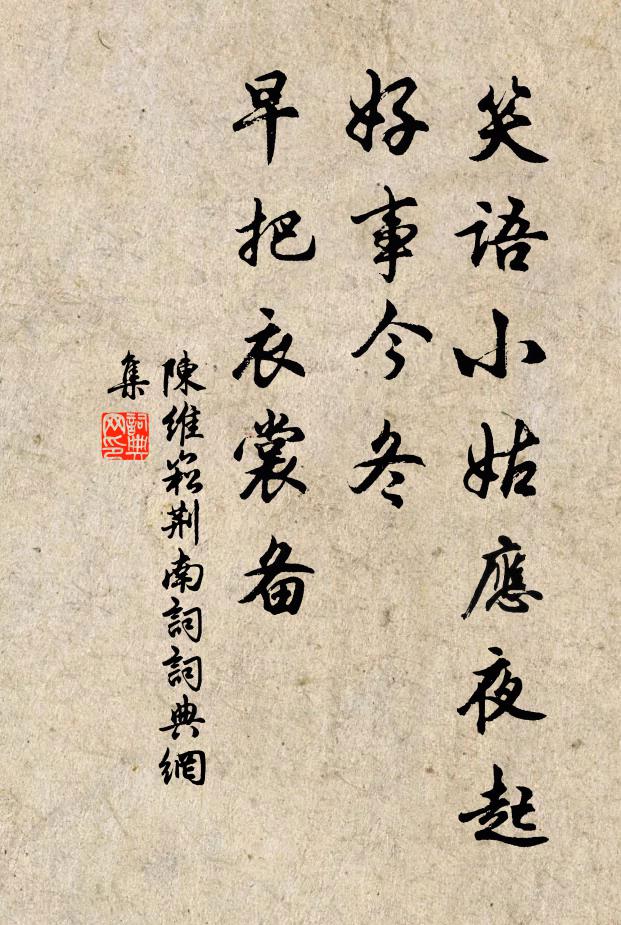 笑語小姑應夜起
好事今冬
早把衣裳备
陳維崧荆南詞詞典網
集
詞典
网印